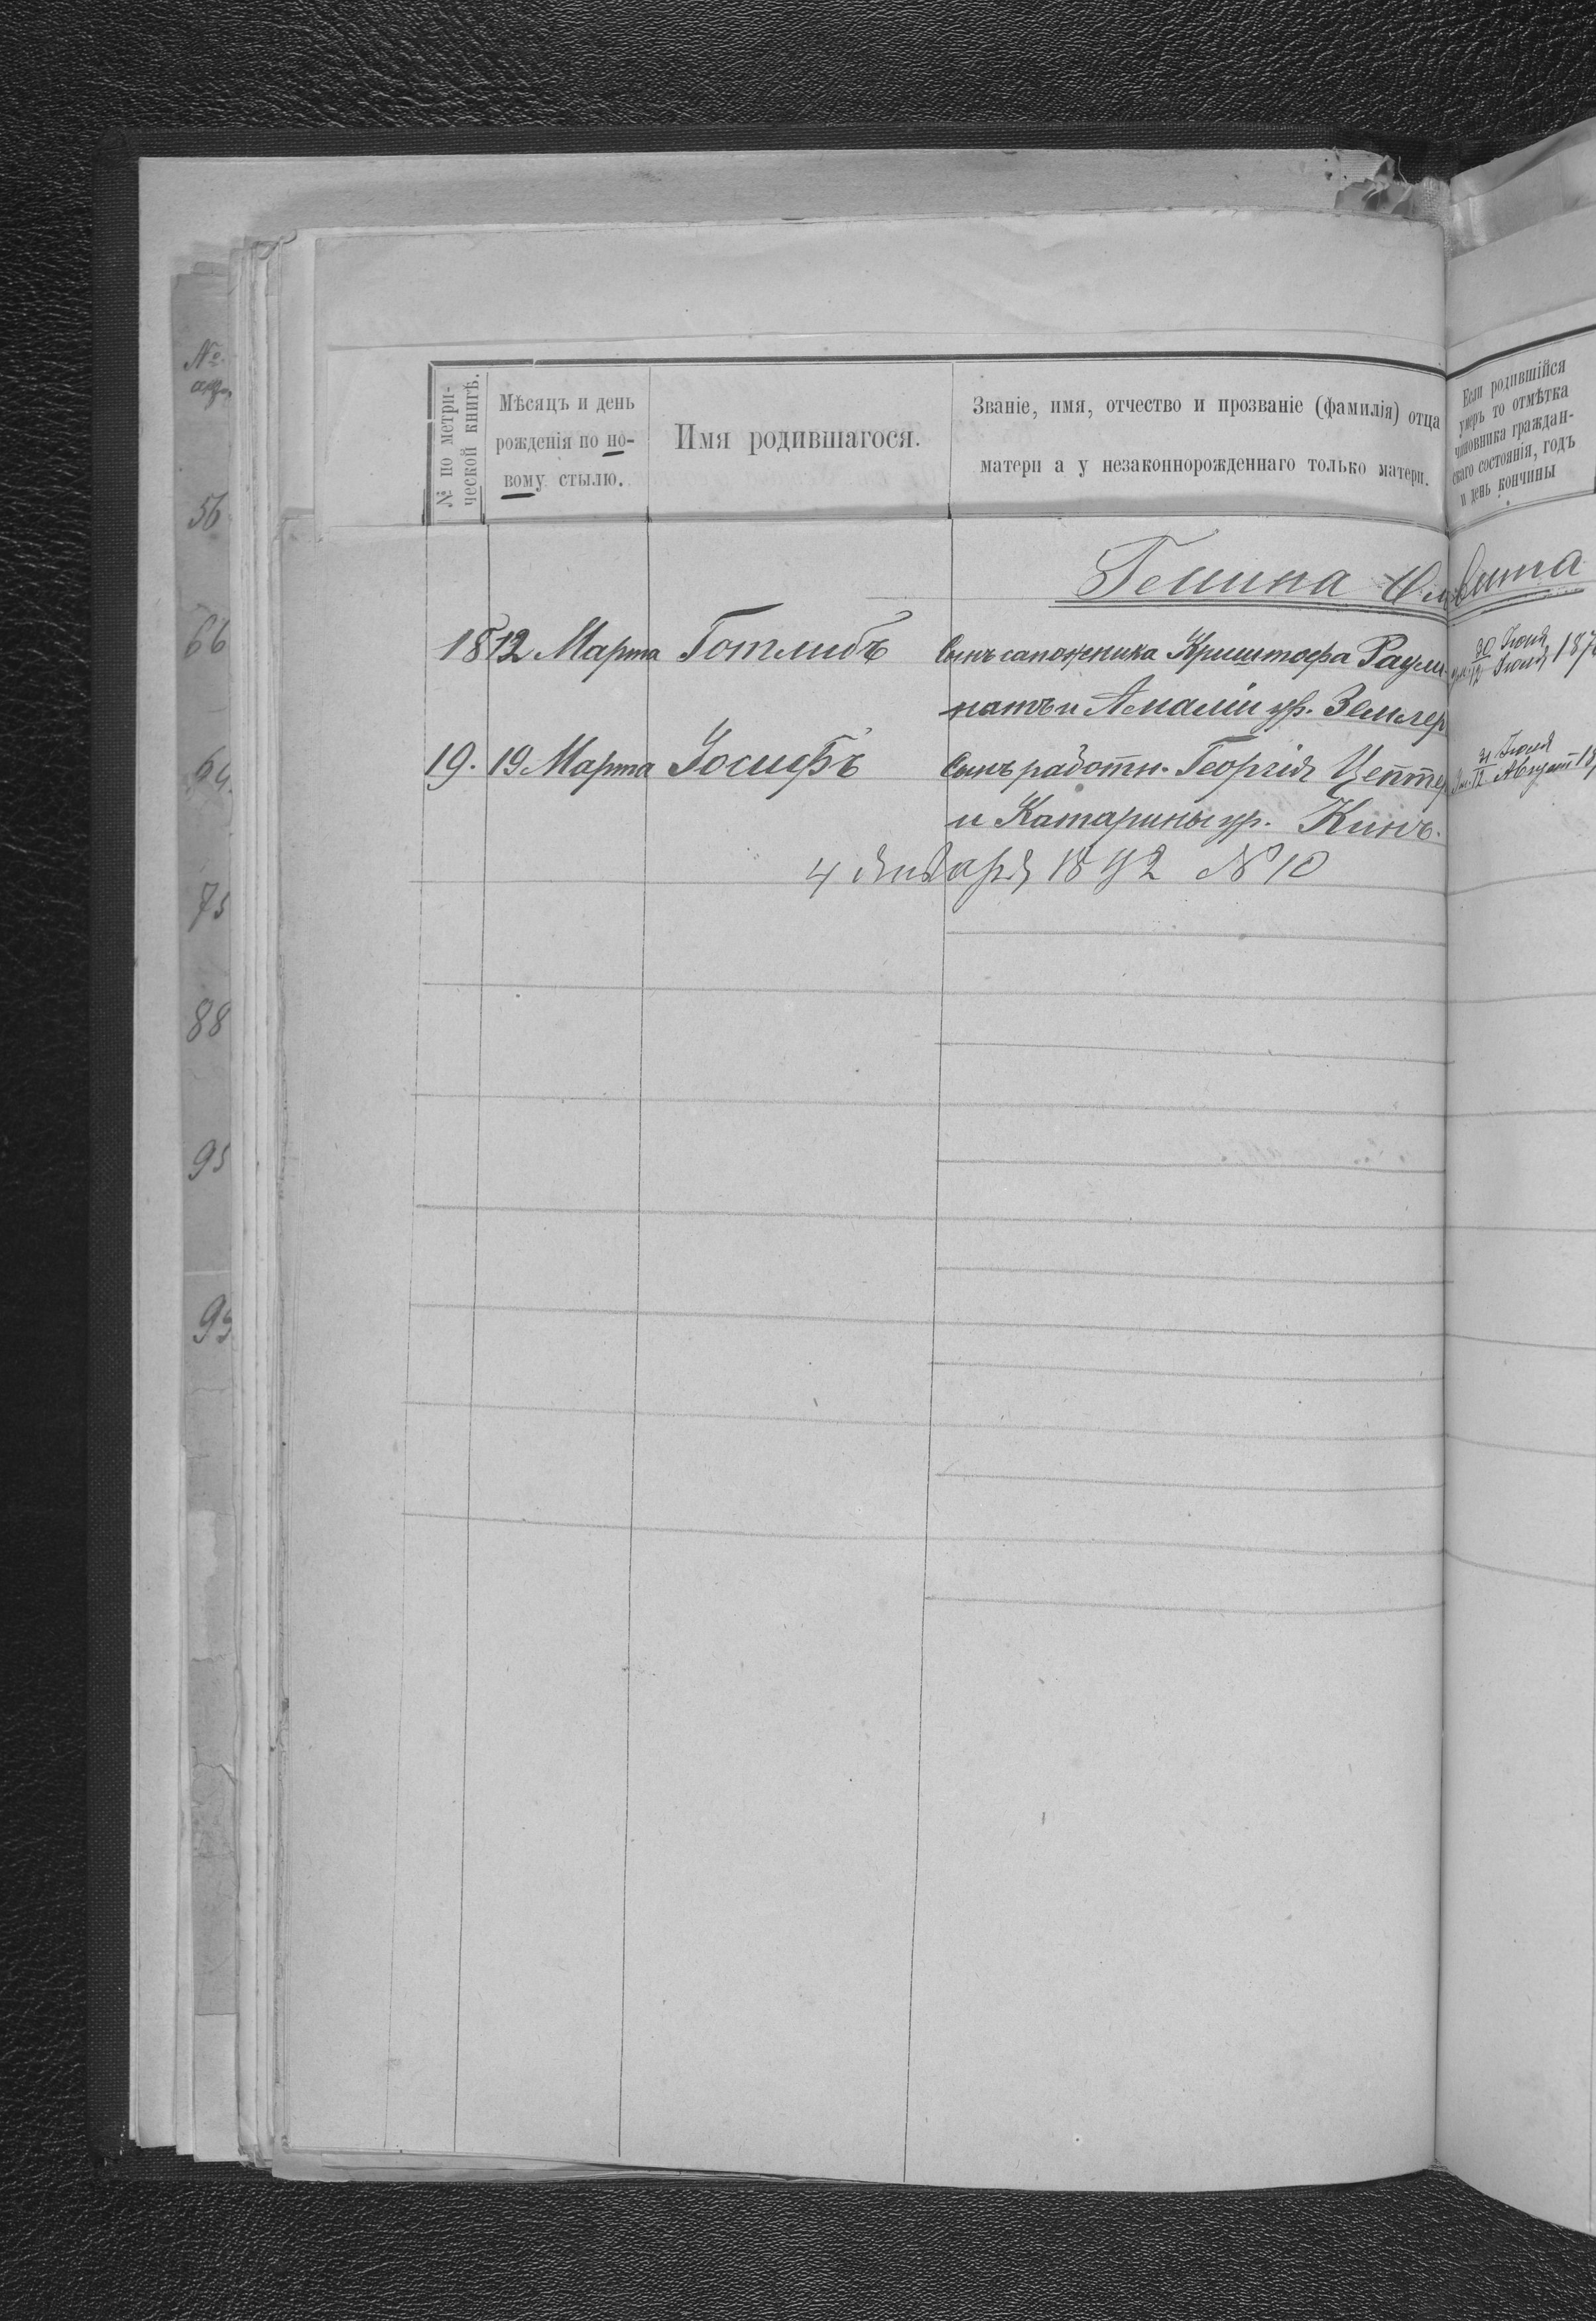 №
56
66
64.
75
88
95
95
№ по метри-
ческой книгѣ.
Мѣсяцъ и день
рожденія по но-
вому стылю.
Имя родившагося.
Званіе, имя, отчество и прозваніе (фамилія) отца
матери а у незаконнорожденнаго только матери.
Если родившійся
умеръ то отмѣтка
чиновника граждан-
скаго состоянія, годъ
и день кончины
Гмина
18 12 Марта Готлибъ Сынъ сапожника Криштофа Раули
натъ и Амаліи ур. Землер
30 Іюня
12 Іюля 187
19. 19 Марта Іосифъ Сынъ работн. Георгія Цептер
и Катарины ур. Кинъ.
31 Іюля
12 Август 18
4 Января 1892 № 10